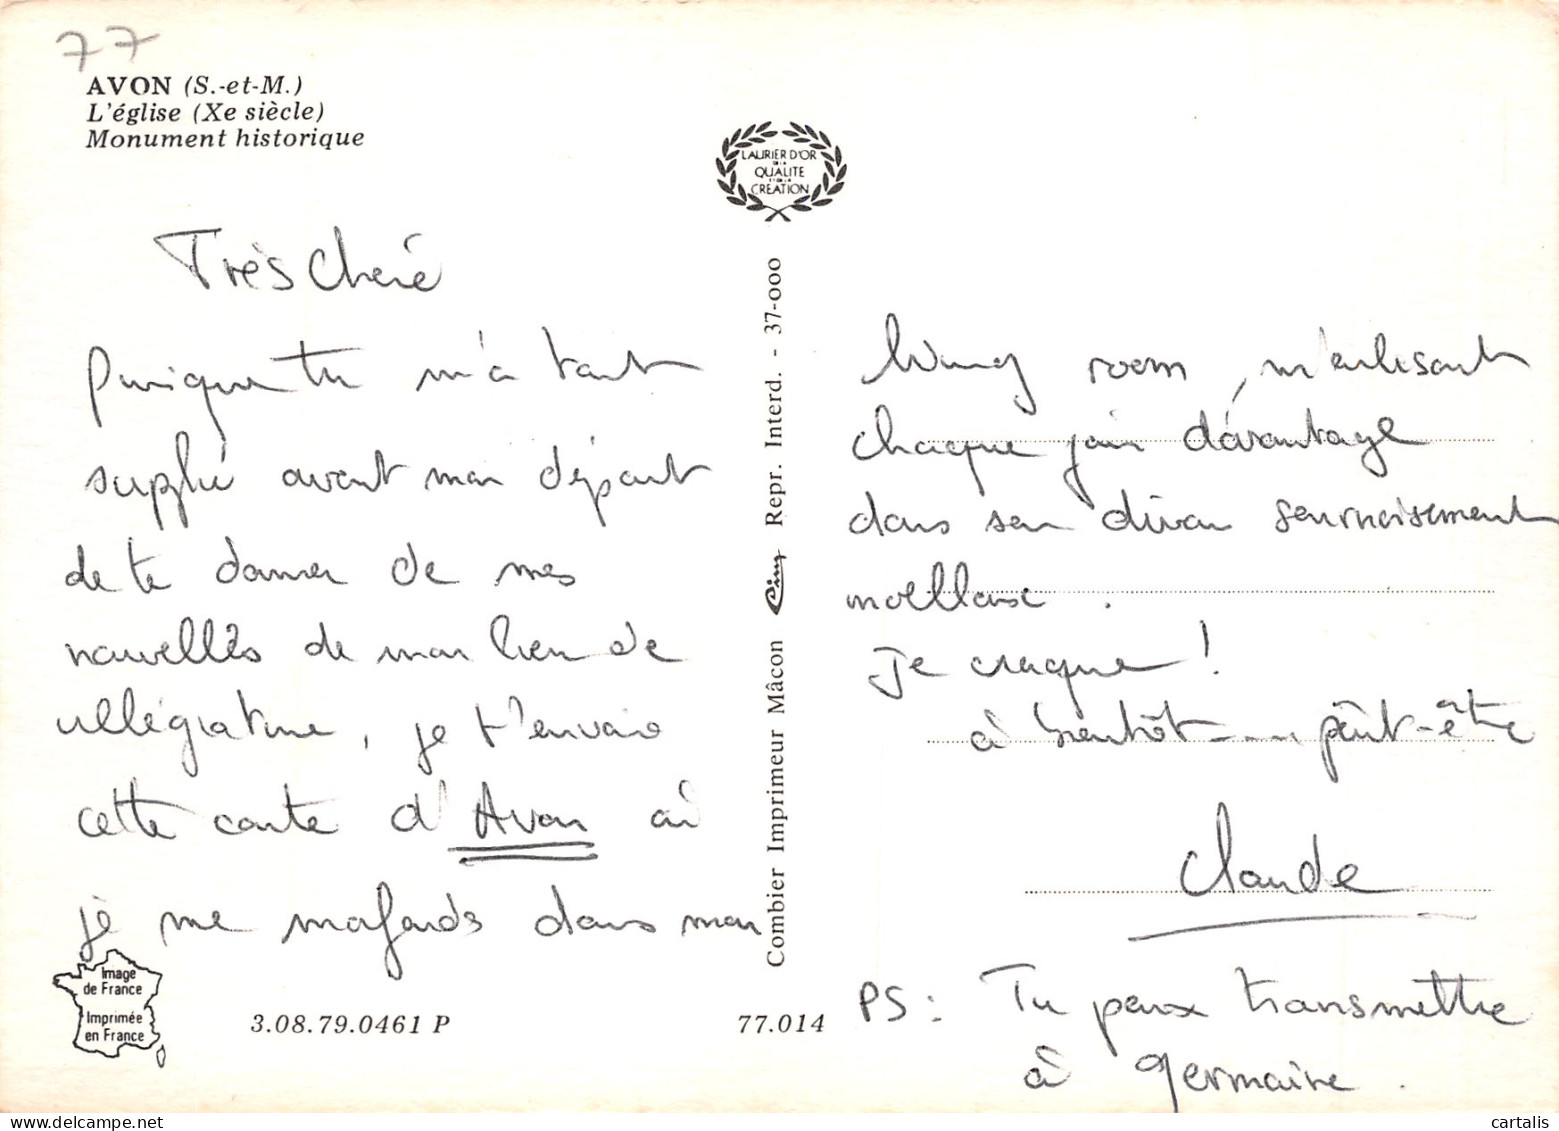 77
AVON (S.-et-M.)
L'église (Xe siècle)
Monument historique
LAURIER D'OR
DE LA
QUALITE
ET DE LA
CREATION
Très Cheré
Puisque tu m'a tant
supplié avant mon départ
de te donner de mes
nouvelles de mon lieu de
villégiature, je t'envoie
cette carte d'Avon où
je me mofonds dans mon
Image
de France
Imprimée
en France
3.08.79.0461 P
77.014
Combier Imprimeur Mâcon Cim Repr. Interd. - 37-000
living room, m'enlisant
chaque jour davantage
dans son divan sournoisement
moelleux.
Je craque!
à bientôt.... pêut-être
Claude
PS: Tu peux transmettre
à Germaine.
cartalis